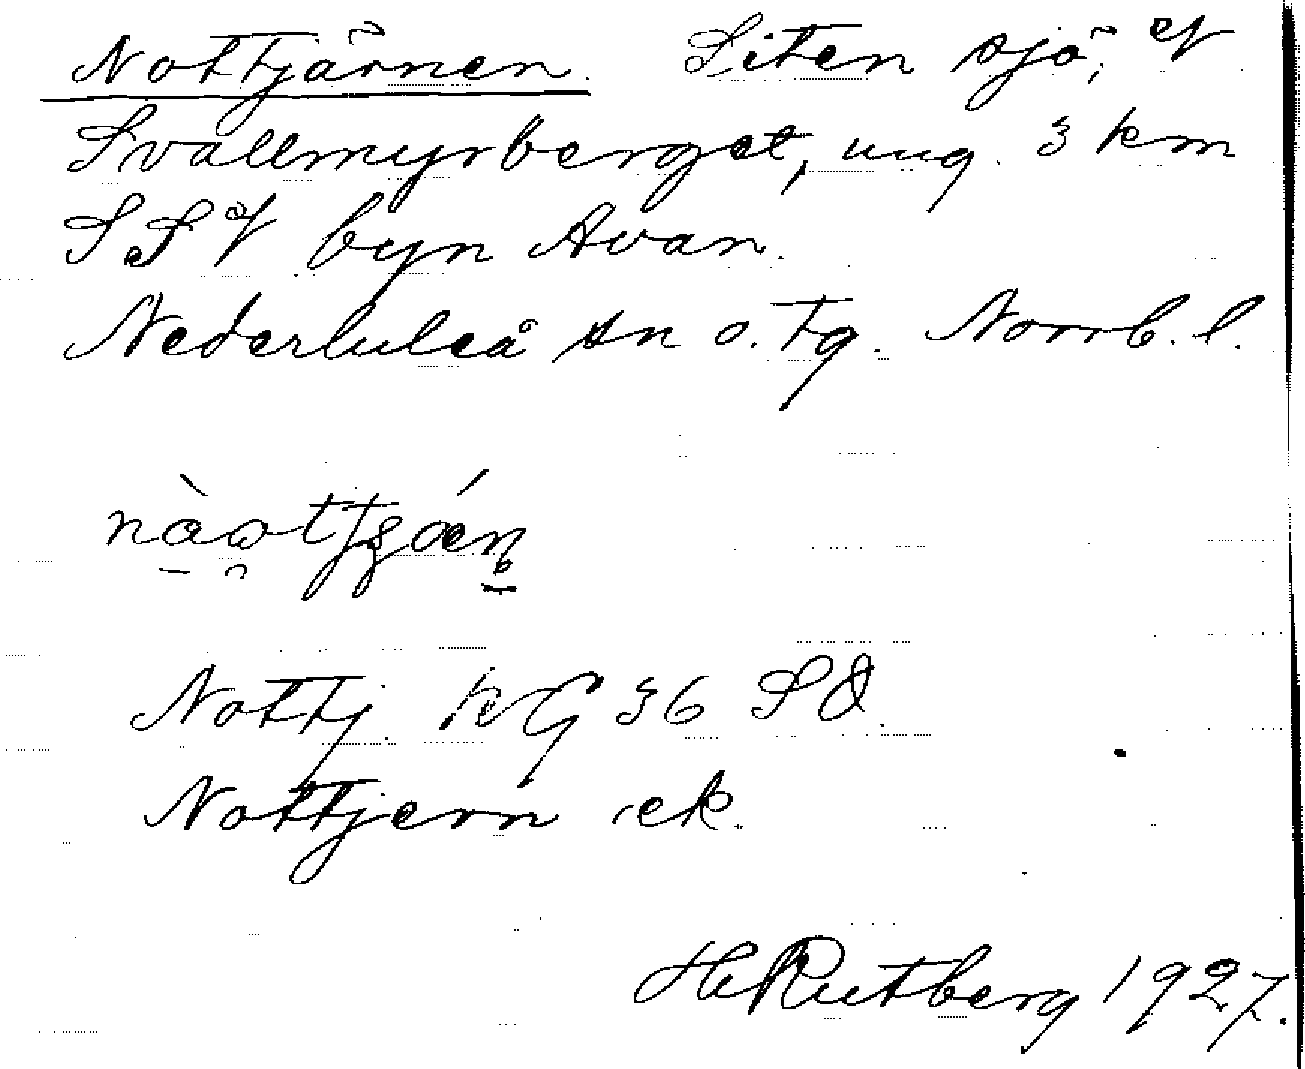 Nottjärnen. Liten sjö, V
Svallmyrberget, ung. 3 km
SSV byn Avan.
Nederluleå sn o. tg. Norrb. l.
Nottj. KG 36 SO.
Nottjern ek.
H Rutberg 1927.